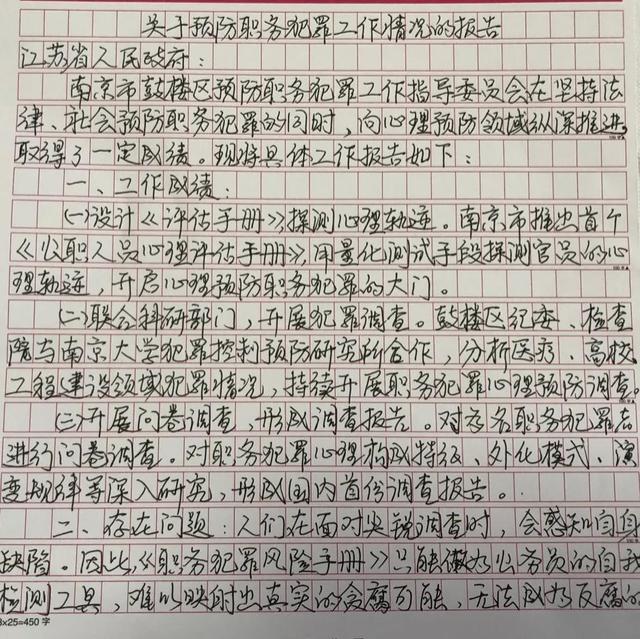 关于预防职务犯罪工作情况的报告
江苏省人民政府：
南京市鼓楼区预防职务犯罪工作指导委员会在坚持法
律、社会预防职务犯罪的同时，向心理预防领域纵深推进，
取得了一定成绩。现将具体工作报告如下：
一、工作成绩：
(一)设计《评估手册》探测心理轨迹。南京市推出首个
《公职人员心理评估手册》，用量化测试手段探测官员的心
理轨迹，开启心理预防职务犯罪的大门。
(二)联合科研部门，开展犯罪调查。鼓楼区纪委、检查
院与南京大学犯罪控制预防研究所合作，分析医疗、高校、
工程建设领域犯罪情况，持续开展职务犯罪心理预防调查。
(三)开展问卷调查，形成调查报告。对多名职务犯罪者
进行问卷调查。对职务犯罪心理构成特征、外化模式、演
变规律等深入研究，形成国内首份调查报告。
二、存在问题：人们在面对尖锐调查时，会感知自身
缺陷。因此，《职务犯罪风险手册》只能做为公务员的自我
检测工具，难以映射出真实的贪腐可能，无法成为反腐的
8×25=450 字